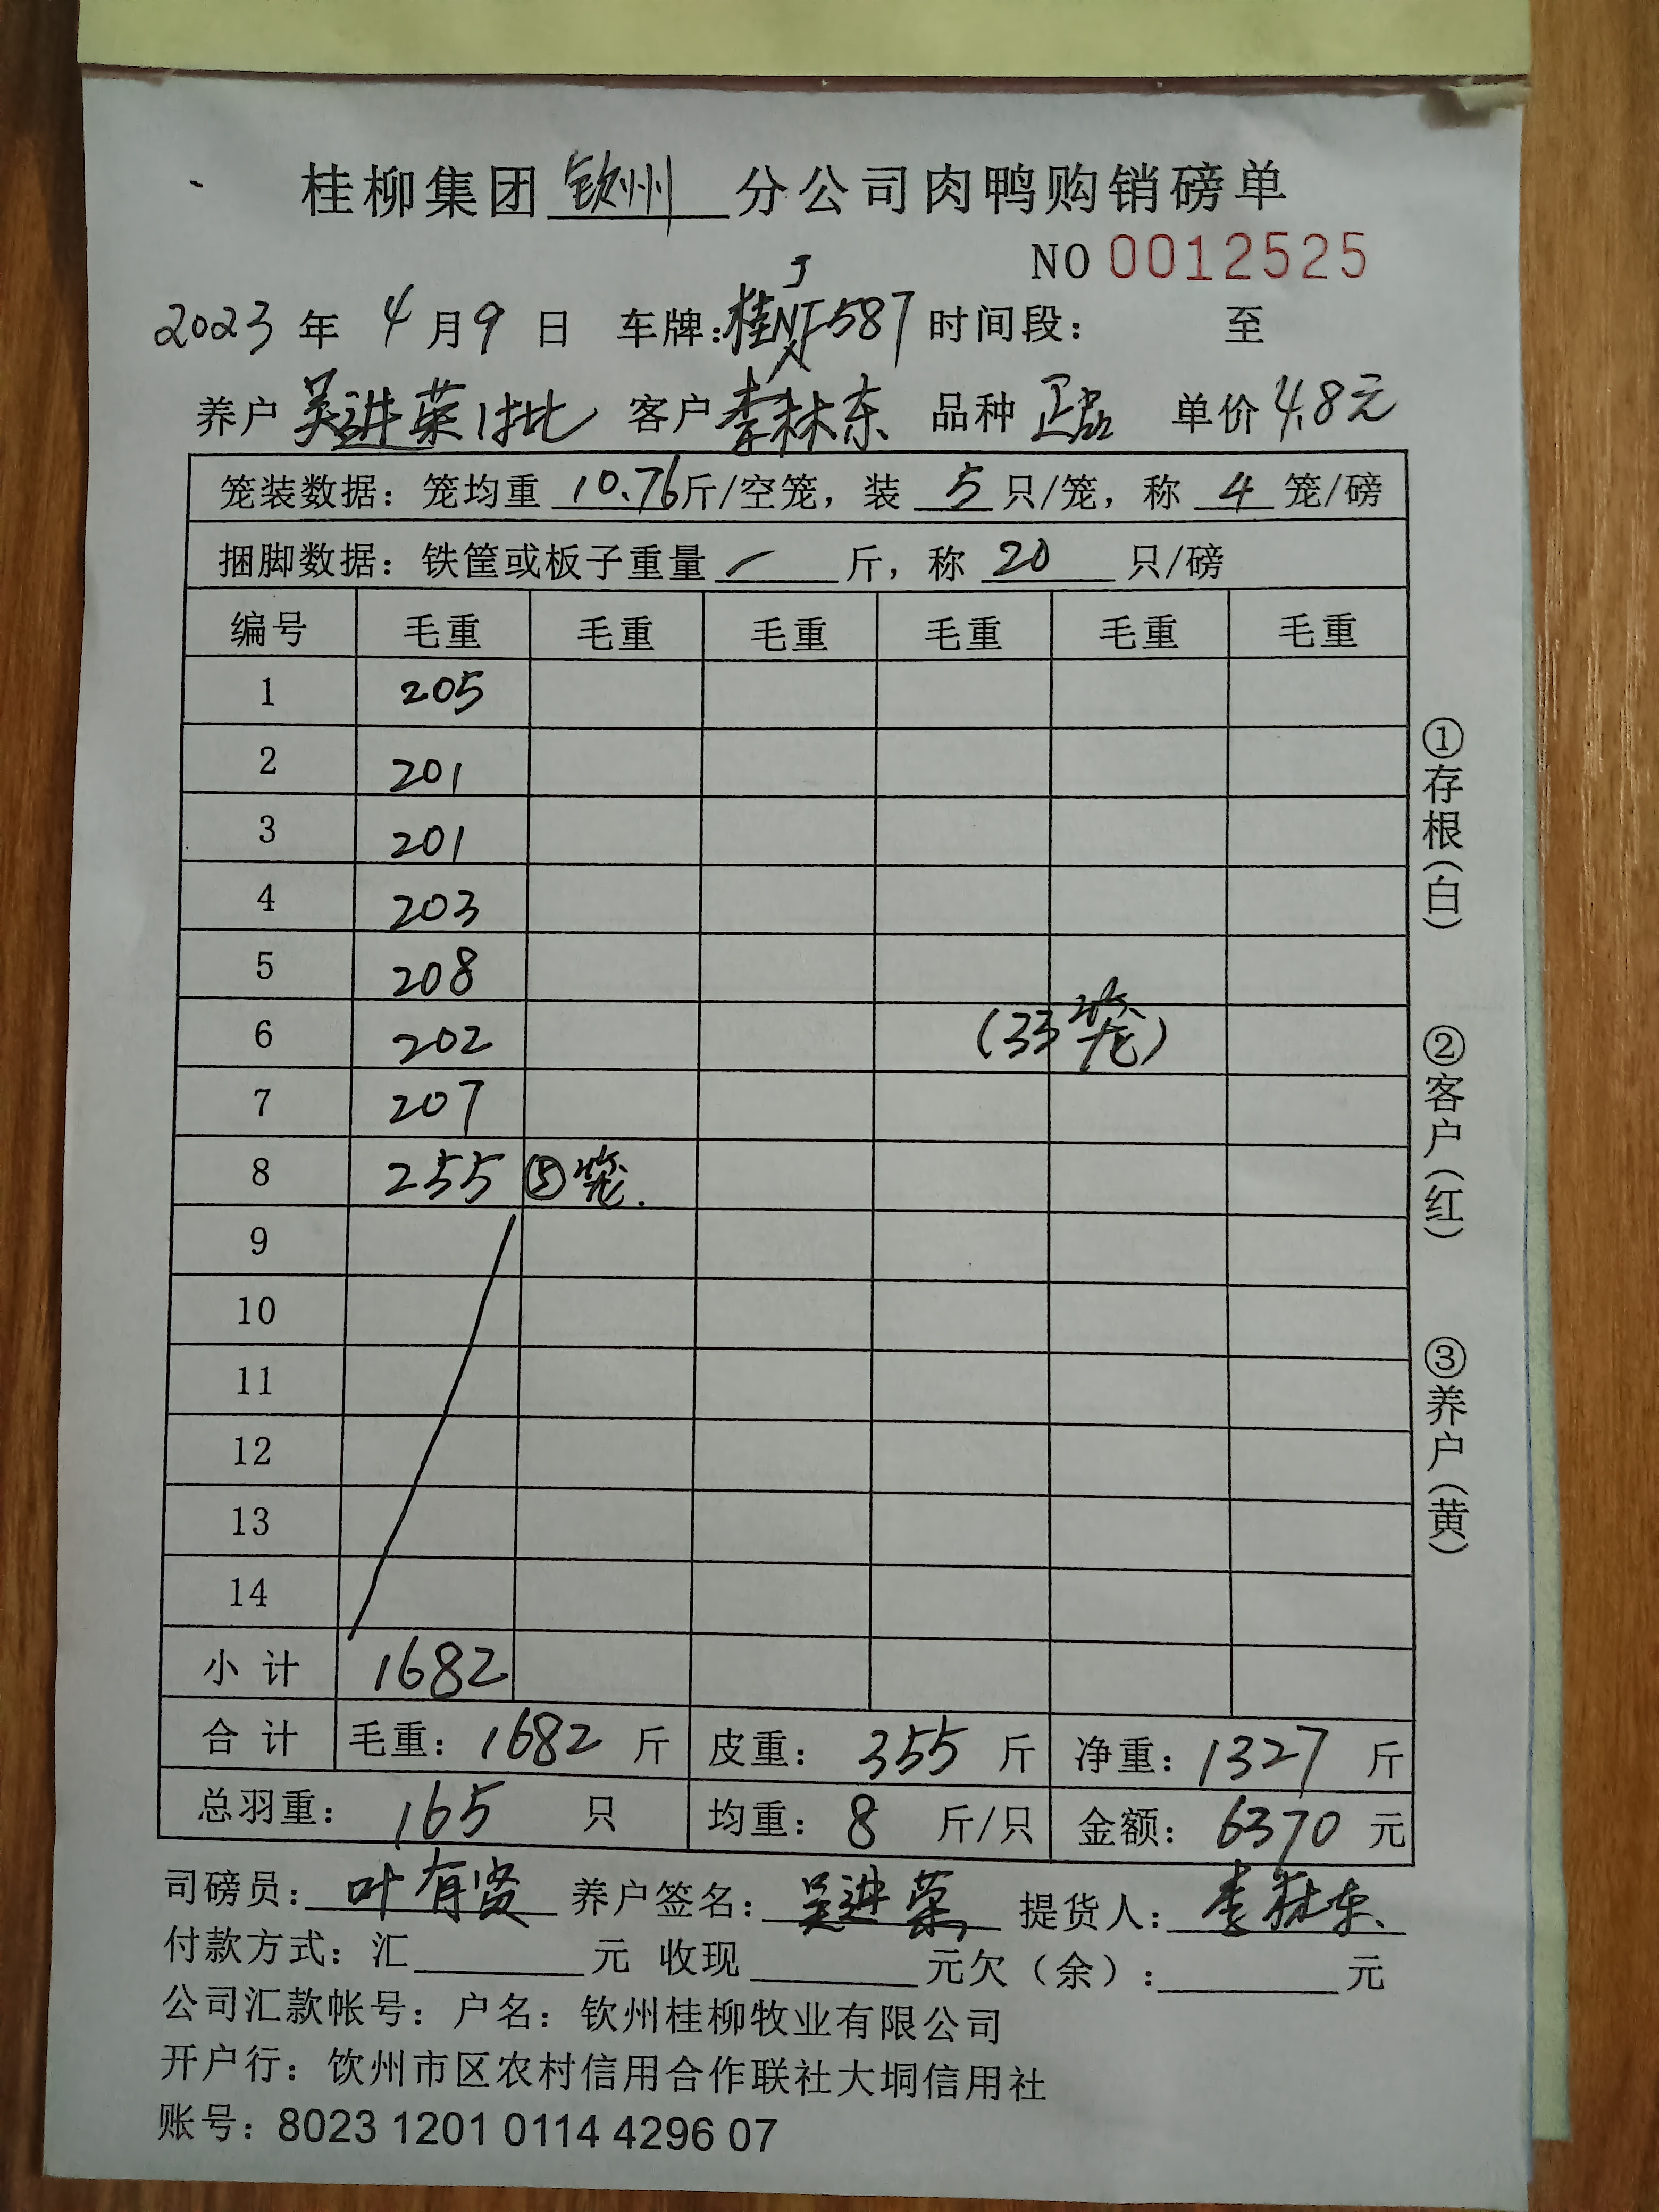 桂柳集团钦州分公司肉鸭购销磅单
NO 0012525
2023年4月9日 车牌:桂NJF587 时间段: 至
养户 吴进荣1批 客户 李林东 品种 正品 单价 4.8元
笼装数据: 笼均重 10.76斤/空笼, 装 5 只/笼, 称 4 笼/磅
捆脚数据: 铁筐或板子重量 / 斤, 称 20 只/磅
编号 毛重 毛重 毛重 毛重 毛重 毛重
1 205
2 201
3 201
4 203
5 208
6 202 (33笼)
7 207
8 255 ⑤笼.
9
10
11
12
13
14
小计 1682
合计 毛重: 1682 斤 皮重: 355 斤 净重: 1327 斤
总羽重: 165 只 均重: 8 斤/只 金额: 6370 元
司磅员: 叶有贤 养户签名: 吴进荣 提货人: 李林东
付款方式: 汇 元 收现 元欠(余): 元
公司汇款帐号: 户名: 钦州桂柳牧业有限公司
开户行: 钦州市区农村信用合作联社大垌信用社
账号: 8023 1201 0114 4296 07
①存根(白)
②客户(红)
③养户(黄)